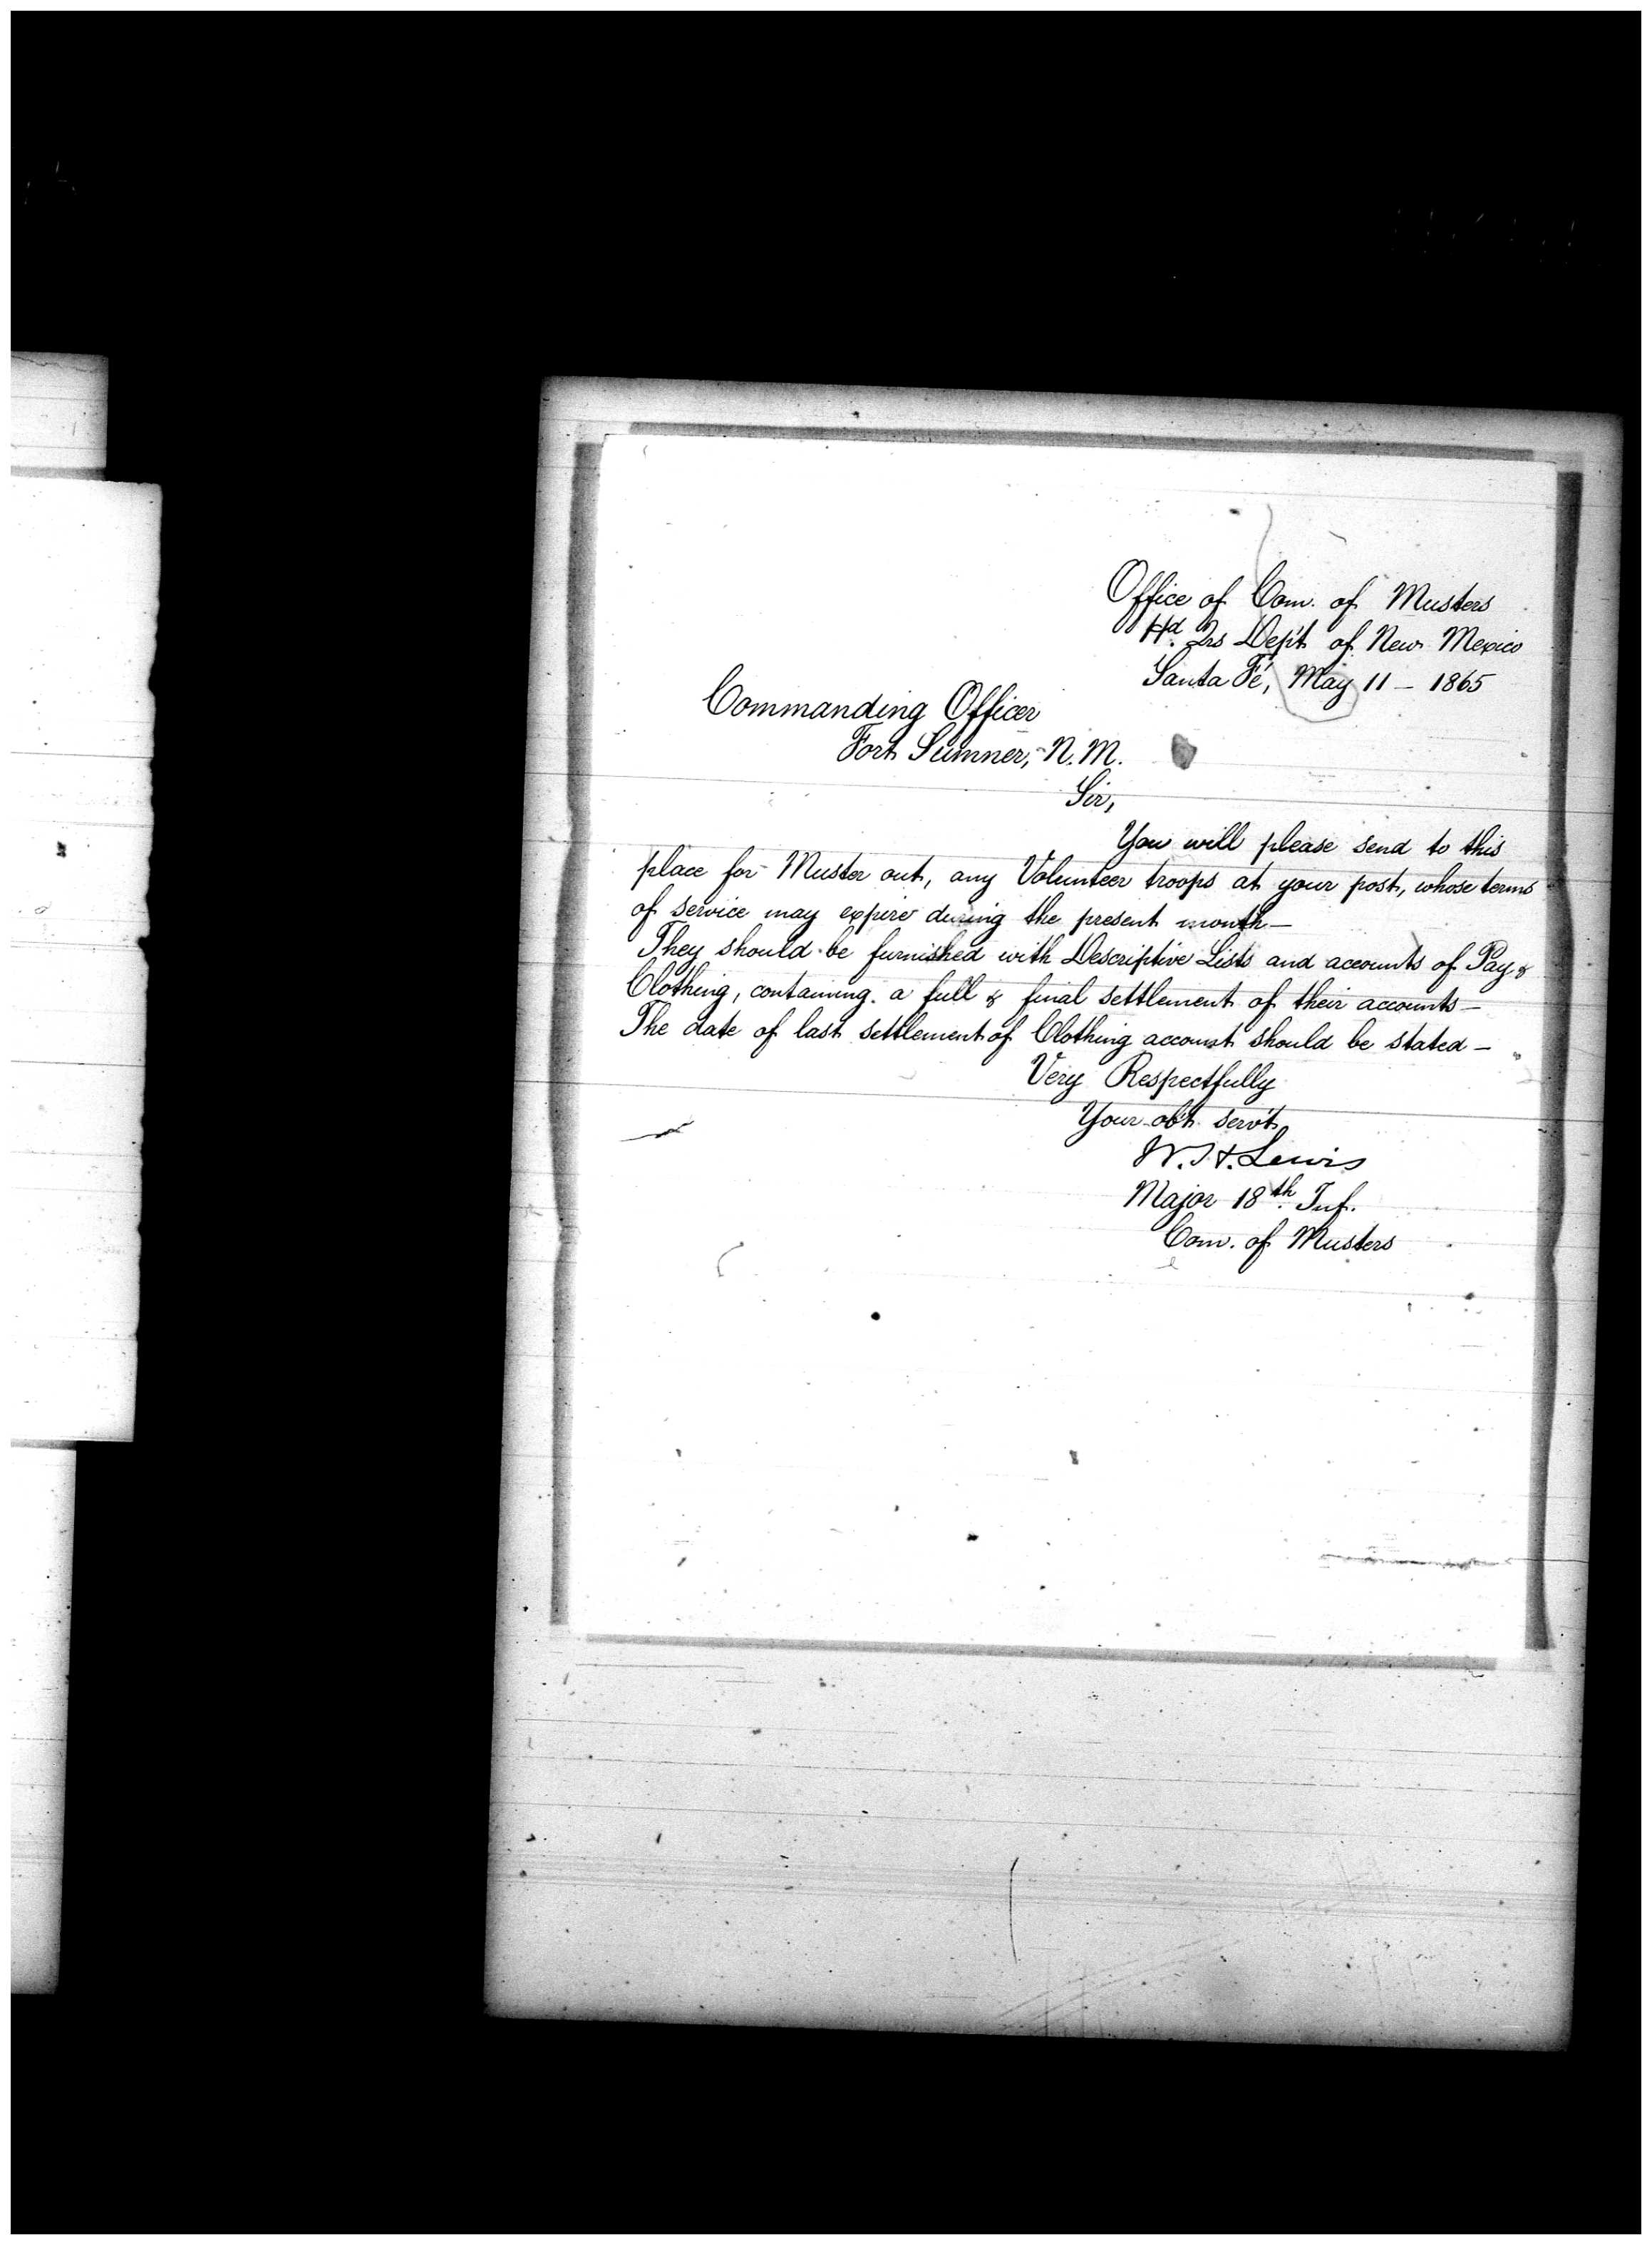 Office of Com. of Musters
Hd. Qrs Dep't of New Mexico
Santa Fé, May 11 - 1865
Commanding Officer
Fort Sumner, N.M.
Sir,
You will please send to this
place for Muster out, any Volunteer troops at your post, whose terms
of service may expire during the present month —
They should be furnished with Descriptive Lists and accounts of Pay &
Clothing, containing a full & final settlement of their accounts —
The date of last settlement of Clothing account should be stated —
Very Respectfully
Your obt servt
W. H. Lewis
Major 18th Inf.
Com. of Musters